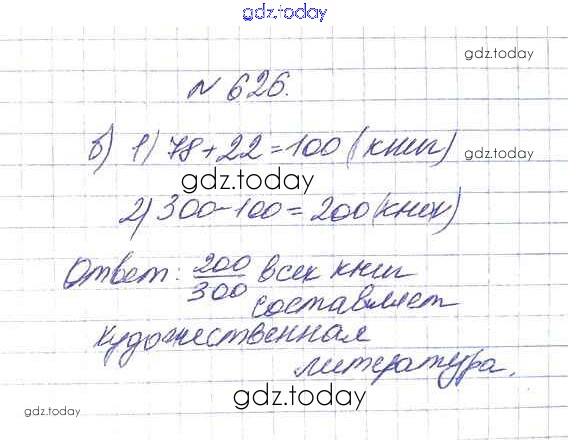 gdz.today
gdz.today
№ 626.
б) 1) 78+22=100 (книг)
gdz.today
gdz.today
2) 300-100=200 (книг)
Ответ: 200/300 всех книг
составляет
художественная
литература.
gdz.today
gdz.today
gdz.today